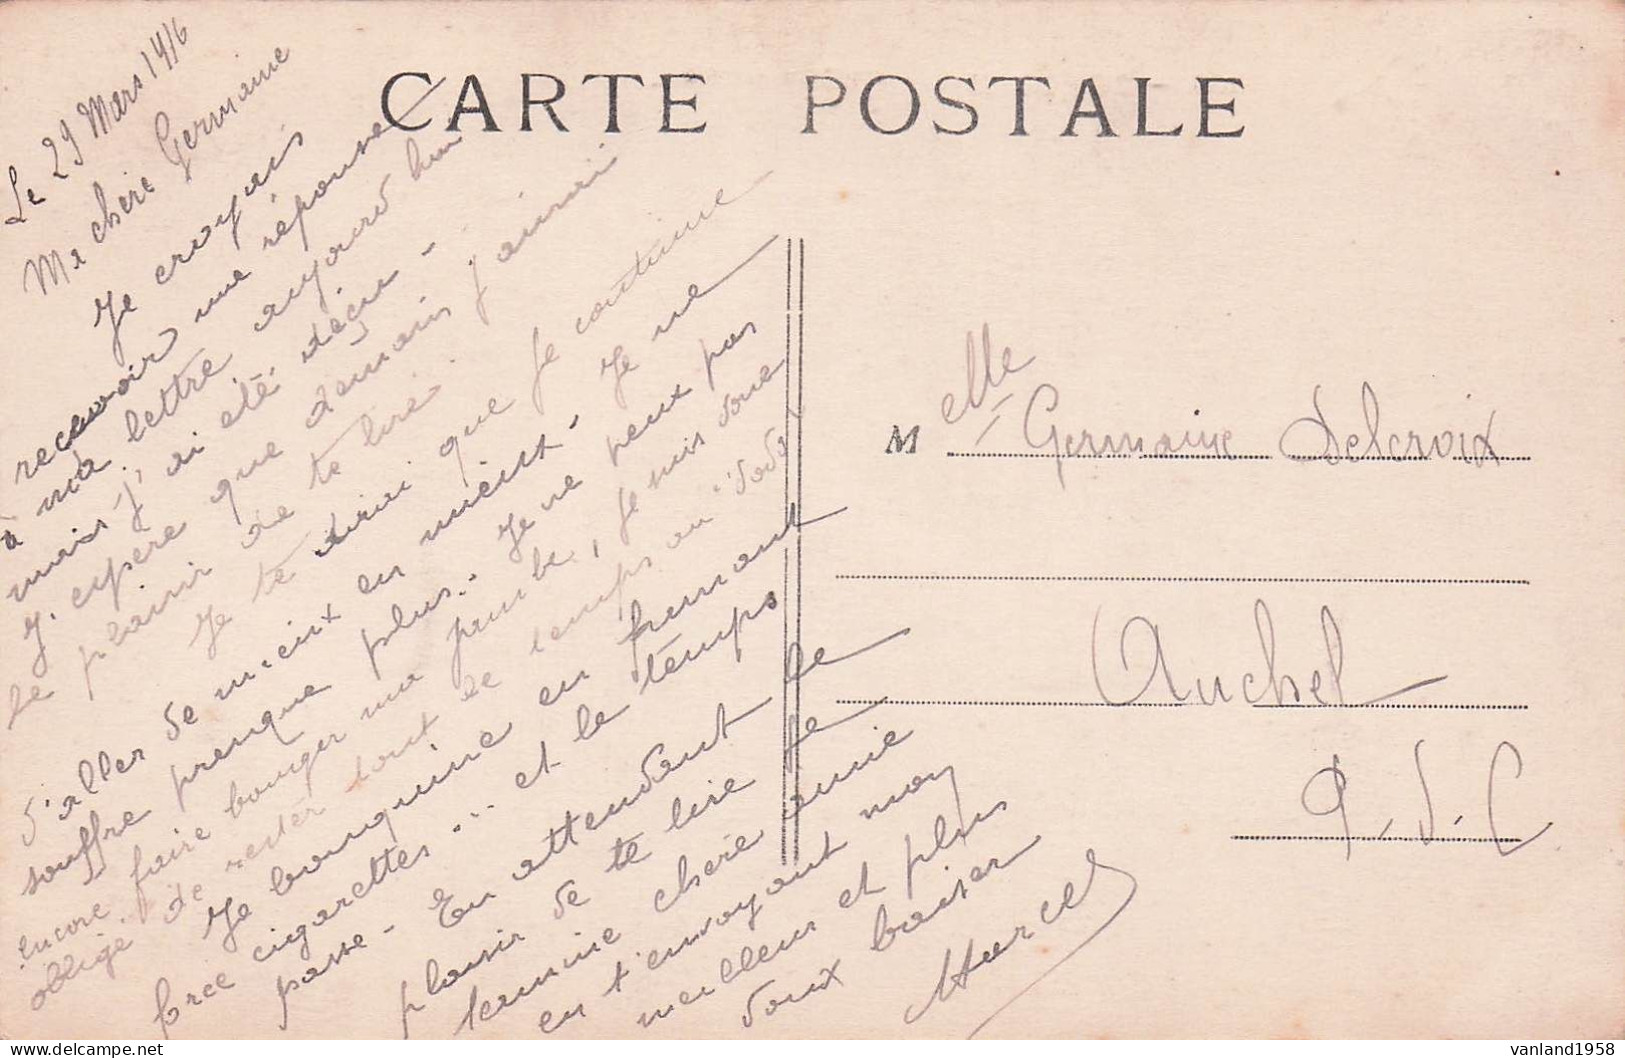 CARTE POSTALE
Le 29 Mars 1916
Ma chère Germaine
Je croyais
recevoir une réponse
à ma lettre aujourd'hui
mais j'ai été déçu -
J'espère que demain j'aurai
le plaisir de te lire.
Je te dirai que je continue
d'aller de mieux en mieux - Je ne
souffre presque plus. Je ne peux pas
encore faire bouger ma jambe, je suis donc
obligé de rester tout le temps au "dodo"
Je bouquine en fumant
force cigarettes... et le temps
passe - En attendant le
plaisir de te lire je
termine chère amie
en t'envoyant mon
meilleur et plus
doux baiser
Marcel
Melle Germaine Delcroix
Auchel
P-d-C
vanland1958